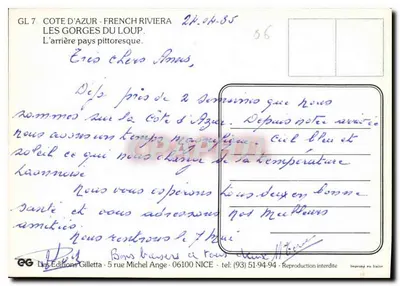 GL 7. COTE D'AZUR - FRENCH RIVIERA 24.04.85
LES GORGES DU LOUP. 06
L'arrière pays pittoresque.
Très chers Amis,
Déjà près de 2 semaines que nous
sommes sur la Côte d'Azur. Depuis notre arrivée
nous avons un temps magnifique. Ciel bleu et
soleil ce qui nous change de la température
Nous vous espérons tous deux en bonne
santé et vous adressons nos meilleurs
amitiés.
Nous rentrons le 7 Mai
Bons baisers à tous deux
EG Les Editions Gilletta - 5 rue Michel Ange - 06100 NICE - tel: (93) 51 94 94 - Reproduction interdite